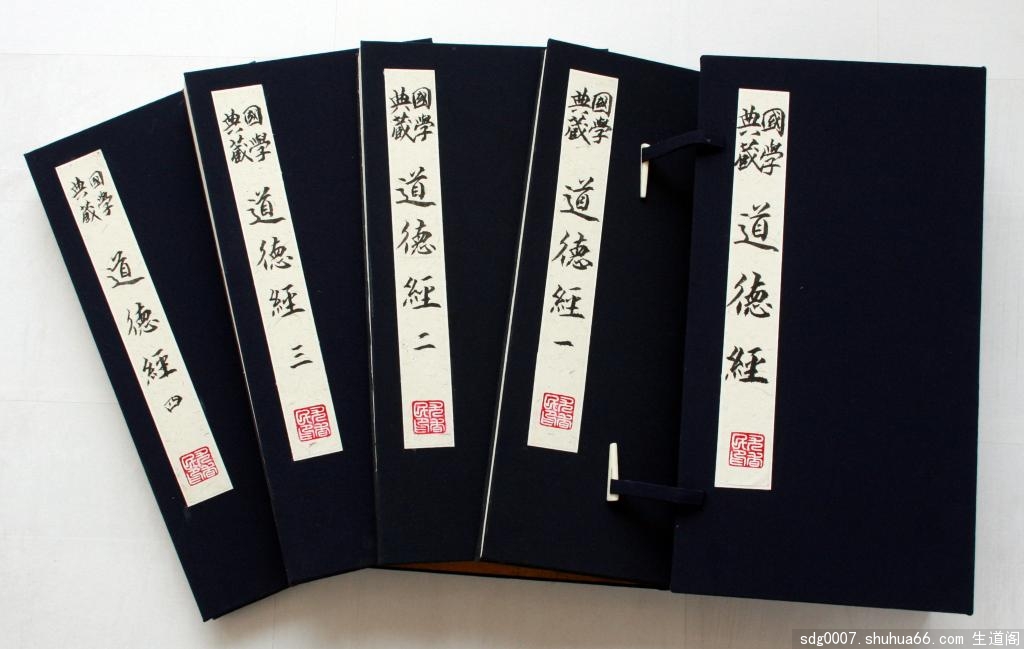 國學
典藏
道德經
四
國學
典藏
道德經
三
國學
典藏
道德經
二
國學
典藏
道德經
一
國學
典藏
道德經
sdg0007.shuhua66.com 生道阁